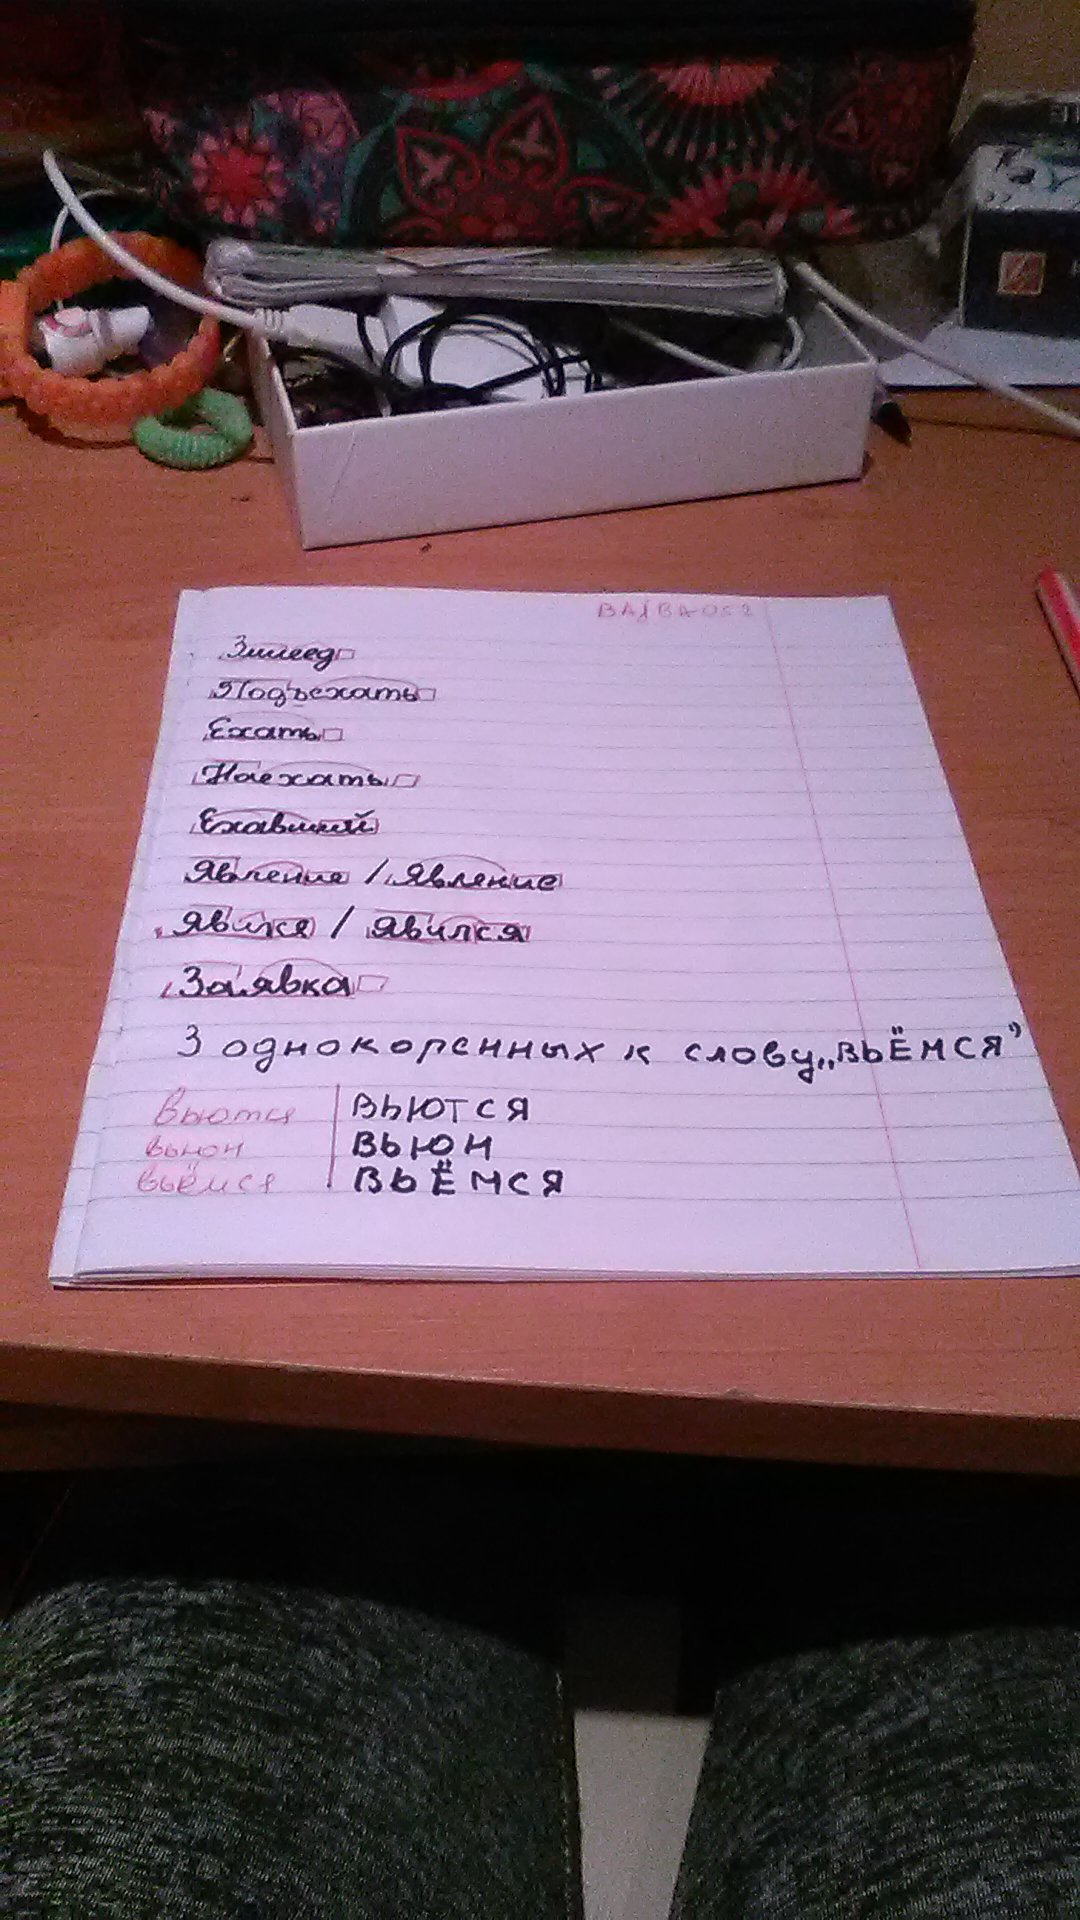 ВА/ВА-052
Змеед
Подъехать
Ехать
Наехать
Ехавший
Явление / Явление
Явился / Явился
Заявка
3 однокоренных к слову „ВЬЁМСЯ”
Вьются | ВЬЮТСЯ
вьюн | ВЬЮН
вьёмся | ВЬЁМСЯ